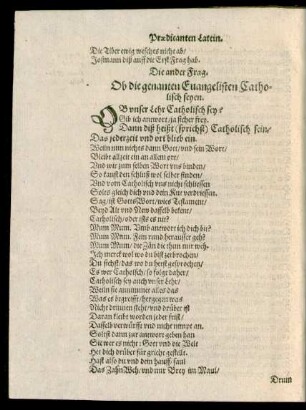 Prædicanten Latein.
Die Tiber ewig wesches nicht ab/
Jostmann diß auff die Erst Frag hab.
Die ander Frag.
Ob die genanten Euangelisten Catho-
lisch seyen.
OB vnser Lehr Catholisch sey?
Gib ich anwort ja sicher frey.
Dann diß heißt (sprichst) Catholisch sein/
Das jederzeit vnd ort blieb ein.
Weiln nun nichts dann Gott/ vnd sein Wort/
Bleibt allzeit ein an allem ort/
Und wir zum selben Wort vns binden/
So kanst den schluß wol selber finden/
Und vom Catholisch vns nicht schliessen
Soltes gleich dich vnd dein Kur verdriessen.
Sag/ ist Gotts Wort/ wies Testament/
Beyd Alt vnd New dasselb bekent/
Catholisch/ oder ists es nit?
Mum Mum. Vmb anwort ich dich bitt?
Mum Mum. Fein rund heraussser geh?
Mum Mum/ die Zän die thun mir weh.
Ich merck wol wo du bist gebrochen/
Du siehst/ das wo du heist gesprochen/
Es wer Catholisch: so folgt daher/
Catholisch sey auch vnser Lehr/
Weiln sie annimmet alles das
Was es begreifft: hergegen was
Nicht drinnen steht/ vnd drüber ist
Daran kleibt worden jeder frist/
Dasselb verwürfft vnd nicht nimpt an.
Solst dann zur anwort geben han
Sie wer es nicht: Gott vnd die Welt
Het dich drüber für gricht gestelt.
Hast also du vnd dein hauff/ faul
Das Zahn Weh/ vnd nur Brey im Maul/
Drum